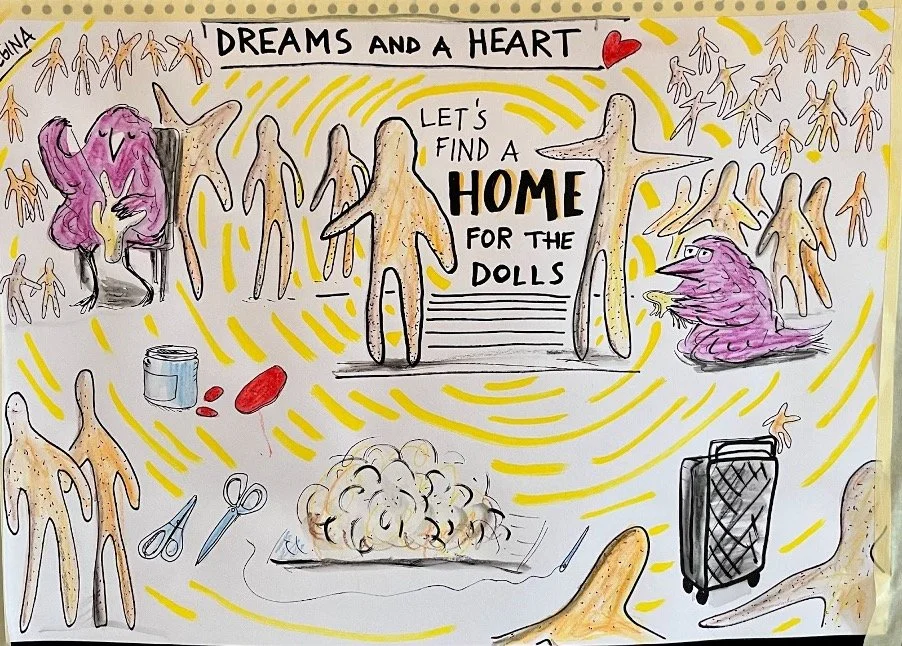 DREAMS AND A HEART
LET'S
FIND A
HOME
FOR THE
DOLLS